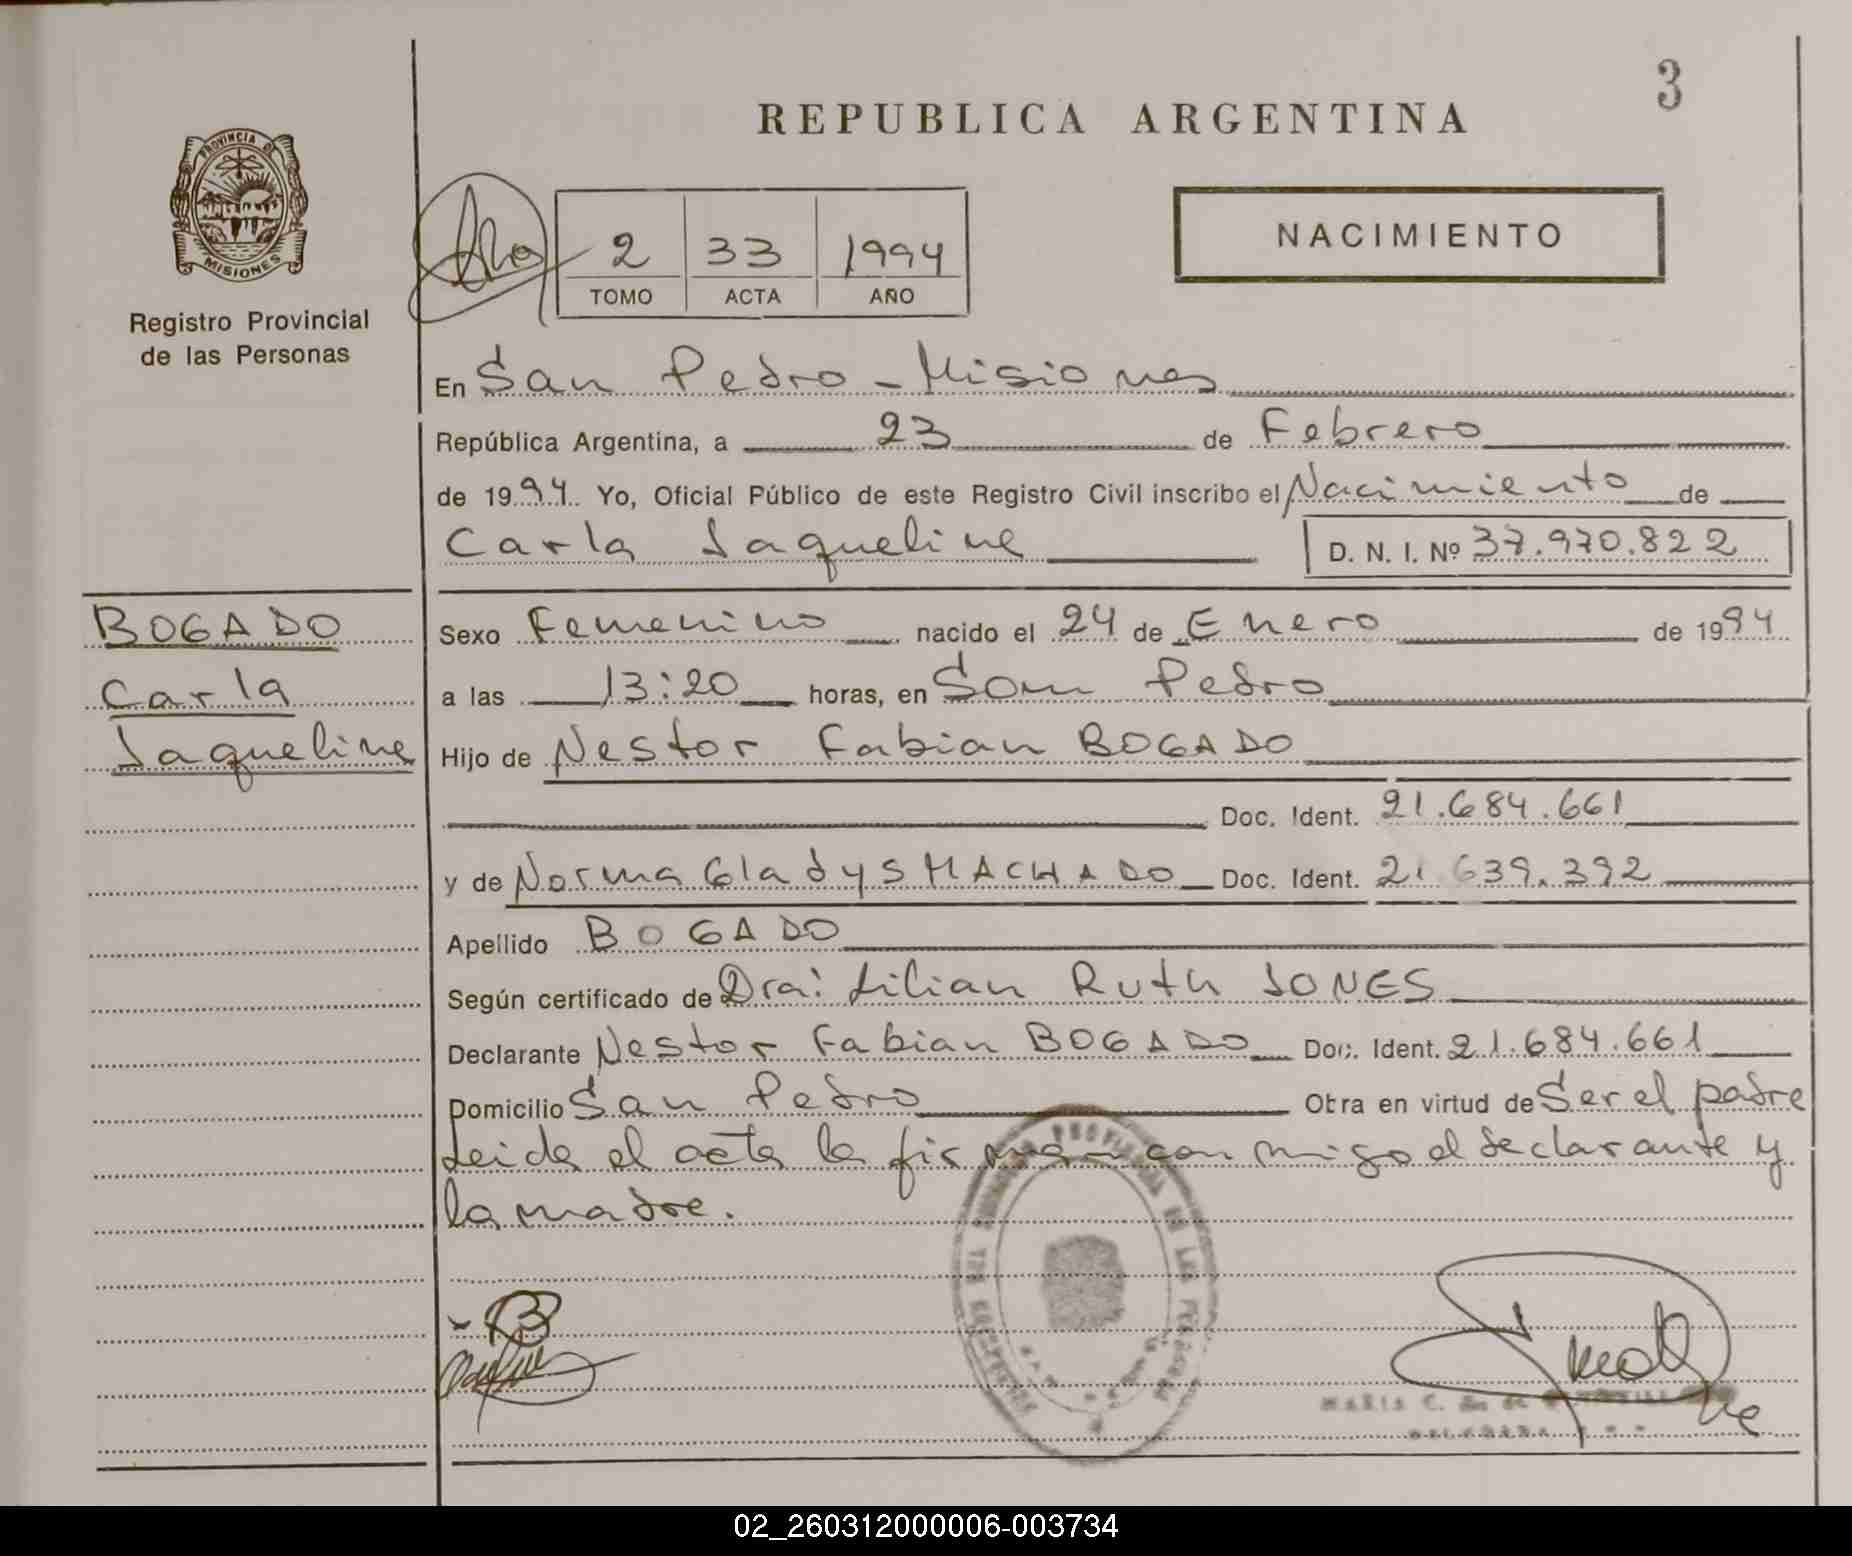 3
REPUBLICA ARGENTINA
PROVINCIA DE
MISIONES
Registro Provincial
de las Personas
2 33 1994
TOMO ACTA AÑO
NACIMIENTO
En San Pedro - Misiones
República Argentina, a 23 de Febrero
de 1994. Yo, Oficial Público de este Registro Civil inscribo el Nacimiento de
Carla Jaqueline D. N. I. Nº 37.970.822
BOGADO
Carla
Jaqueline
Sexo Femenino nacido el 24 de Enero de 1994
a las 13:20 horas, en San Pedro
Hijo de Nestor Fabian BOGADO
Doc. Ident. 21.684.661
y de Norma Gladys MACHADO Doc. Ident. 21 639.392
Apellido BOGADO
Según certificado de Dra: Lilian Ruth JONES
Declarante Nestor Fabian BOGADO Doc. Ident. 21.684.661
Domicilio San Pedro Obra en virtud de Ser el padre
Leida el acta la firman con migo el declarante y
la madre.
MARIA C.
02_260312000006-003734